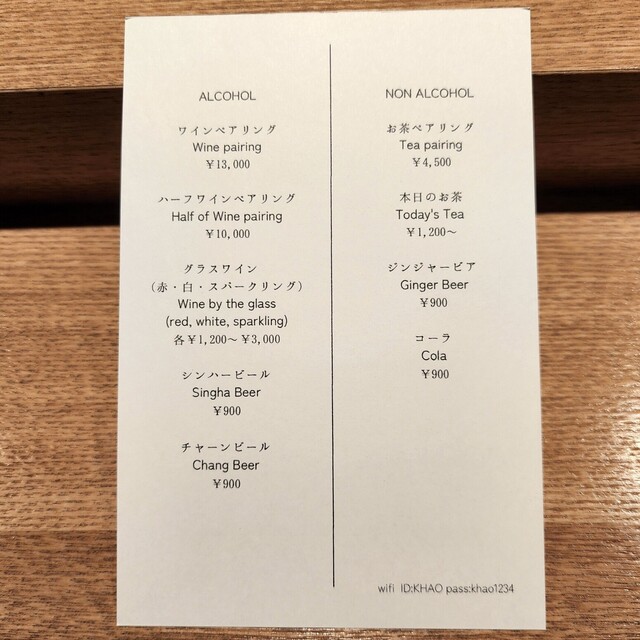 ALCOHOL
ワインペアリング
Wine pairing
¥13,000
ハーフワインペアリング
Half of Wine pairing
¥10,000
グラスワイン
（赤・白・スパークリング）
Wine by the glass
(red, white, sparkling)
各¥1,200～¥3,000
シンハービール
Singha Beer
¥900
チャーンビール
Chang Beer
¥900
NON ALCOHOL
お茶ペアリング
Tea pairing
¥4,500
本日のお茶
Today's Tea
¥1,200～
ジンジャービア
Ginger Beer
¥900
コーラ
Cola
¥900
wifi ID:KHAO pass:khao1234